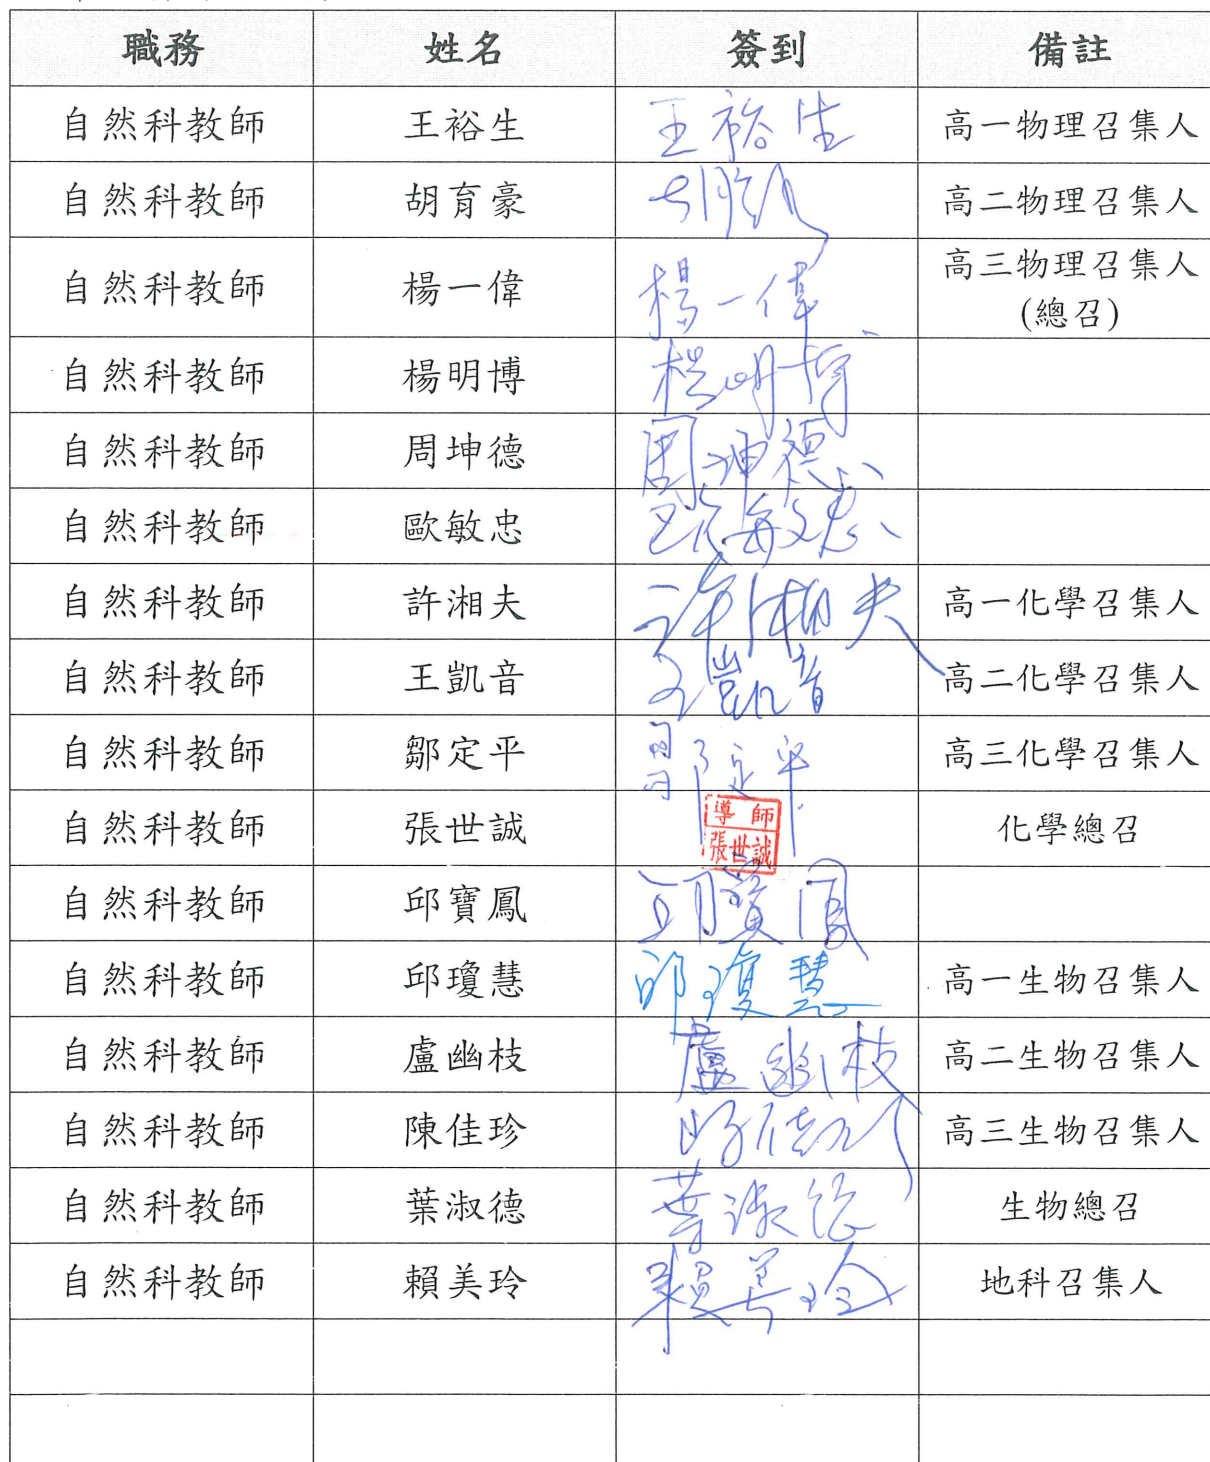 職務 姓名 簽到 備註
自然科教師 王裕生 王裕生 高一物理召集人
自然科教師 胡育豪 高二物理召集人
自然科教師 楊一偉 楊一偉 高三物理召集人
(總召)
自然科教師 楊明博 楊明博
自然科教師 周坤德 周坤德
自然科教師 歐敏忠 歐敏忠
自然科教師 許湘夫 許湘夫 高一化學召集人
自然科教師 王凱音 王凱音 高二化學召集人
自然科教師 鄒定平 鄒定平 高三化學召集人
自然科教師 張世誠 導師 化學總召
張世誠
自然科教師 邱寶鳳 邱寶鳳
自然科教師 邱瓊慧 邱瓊慧 高一生物召集人
自然科教師 盧幽枝 盧幽枝 高二生物召集人
自然科教師 陳佳珍 高三生物召集人
自然科教師 葉淑德 葉淑德 生物總召
自然科教師 賴美玲 賴美玲 地科召集人